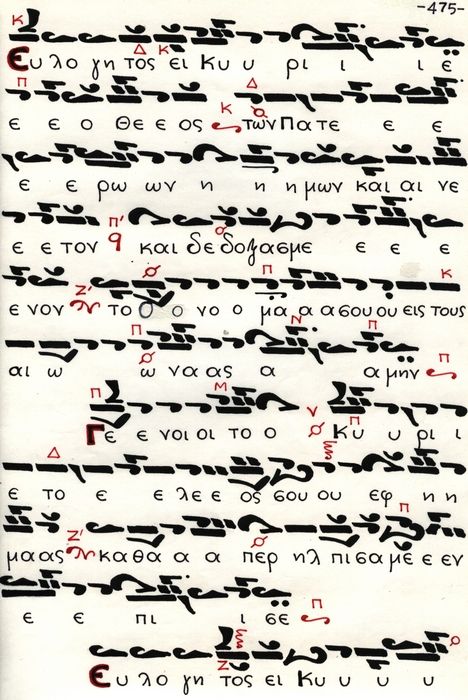 -475-
Ευ λο γη τος ει Κυ υ ρι ι ι ε
ε ε ο Θε ε ος των Πα τε ε ε
ε ε ρω ων η η η μων και αι νε
ε ε τον και δε δο ξα σμε ε ε ε
ε νον το ο ο νο ο μα α α σου ου εις τους
αι ω ω να ας α α μην
Γε ε νοι οι το ο Κυ υ ρι ι
ε το ε ε λε ε ος σου ου εφ η η
μα ας κα θα α α περ ηλ πι σα με ε εν
ε ε πι ι σε
Ευ λο γη τος ει Κυ υ υ υ